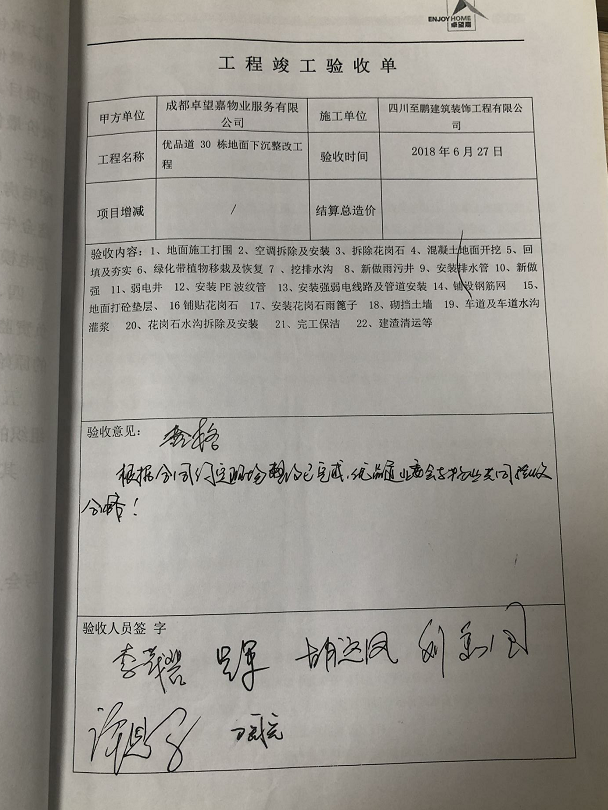 ENJOYHOME
卓望嘉
工程竣工验收单
甲方单位
成都卓望嘉物业服务有限
公司
施工单位
四川至鹏建筑装饰工程有限公
司
工程名称
优品道 30 栋地面下沉整改工
程
验收时间
2018 年 6 月 27 日
项目增减
/
结算总造价
验收内容：1、地面施工打围 2、空调拆除及安装 3、拆除花岗石 4、混凝土地面开挖 5、回
填及夯实 6、绿化带植物移栽及恢复 7 、挖排水沟 8、新做雨污井 9、安装排水管 10、新做
强 11、弱电井 12、安装 PE 波纹管 13、安装强弱电线路及管道安装 14、铺设钢筋网 15、
地面打砼垫层、 16 铺贴花岗石 17、安装花岗石雨篦子 18、砌挡土墙 19、车道及车道水沟
灌浆 20、花岗石水沟拆除及安装 21、完工保洁 22、建渣清运等
验收意见：
根据合同约定现场整改已完成，优品道业委会与物业共同验收
合格！
验收人员签 字